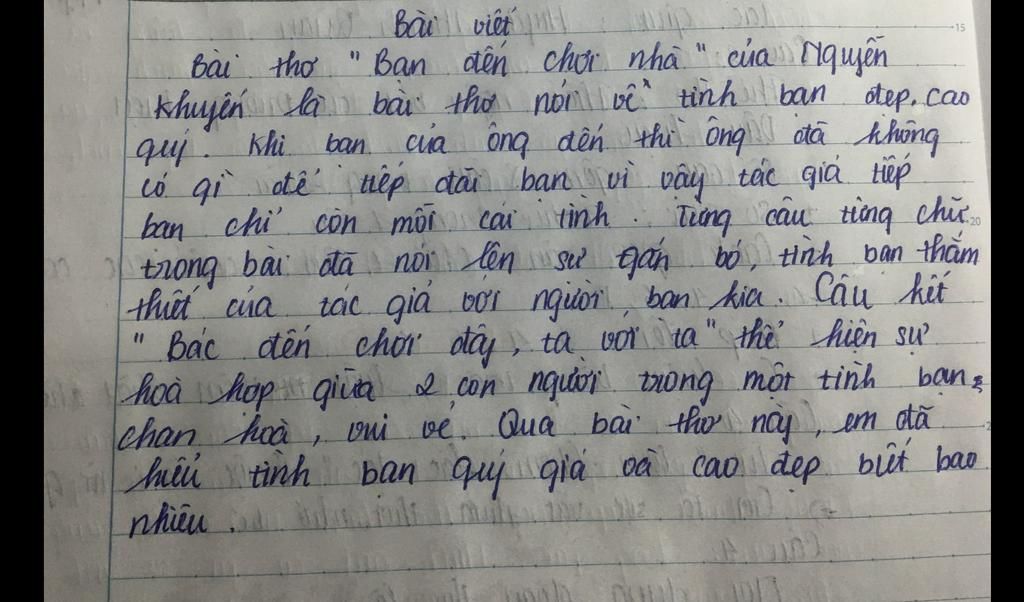 Bài viết
Bài thơ "Bạn đến chơi nhà" của Nguyễn
Khuyến là bài thơ nói về tình bạn đẹp, cao
quý. Khi bạn của ông đến thì ông đã không
có gì để tiếp đãi bạn vì vậy tác giả tiếp
bạn chỉ còn mỗi cái tình. Từng câu từng chữ
trong bài đã nói lên sự gắn bó, tình bạn thắm
thiết của tác giả với người bạn kia. Câu kết
"Bác đến chơi đây, ta với ta" thể hiện sự
hoà hợp giữa 2 con người trong một tình bạn
chan hoà, vui vẻ. Qua bài thơ này, em đã
hiểu tình bạn quý giá và cao đẹp biết bao
nhiêu.